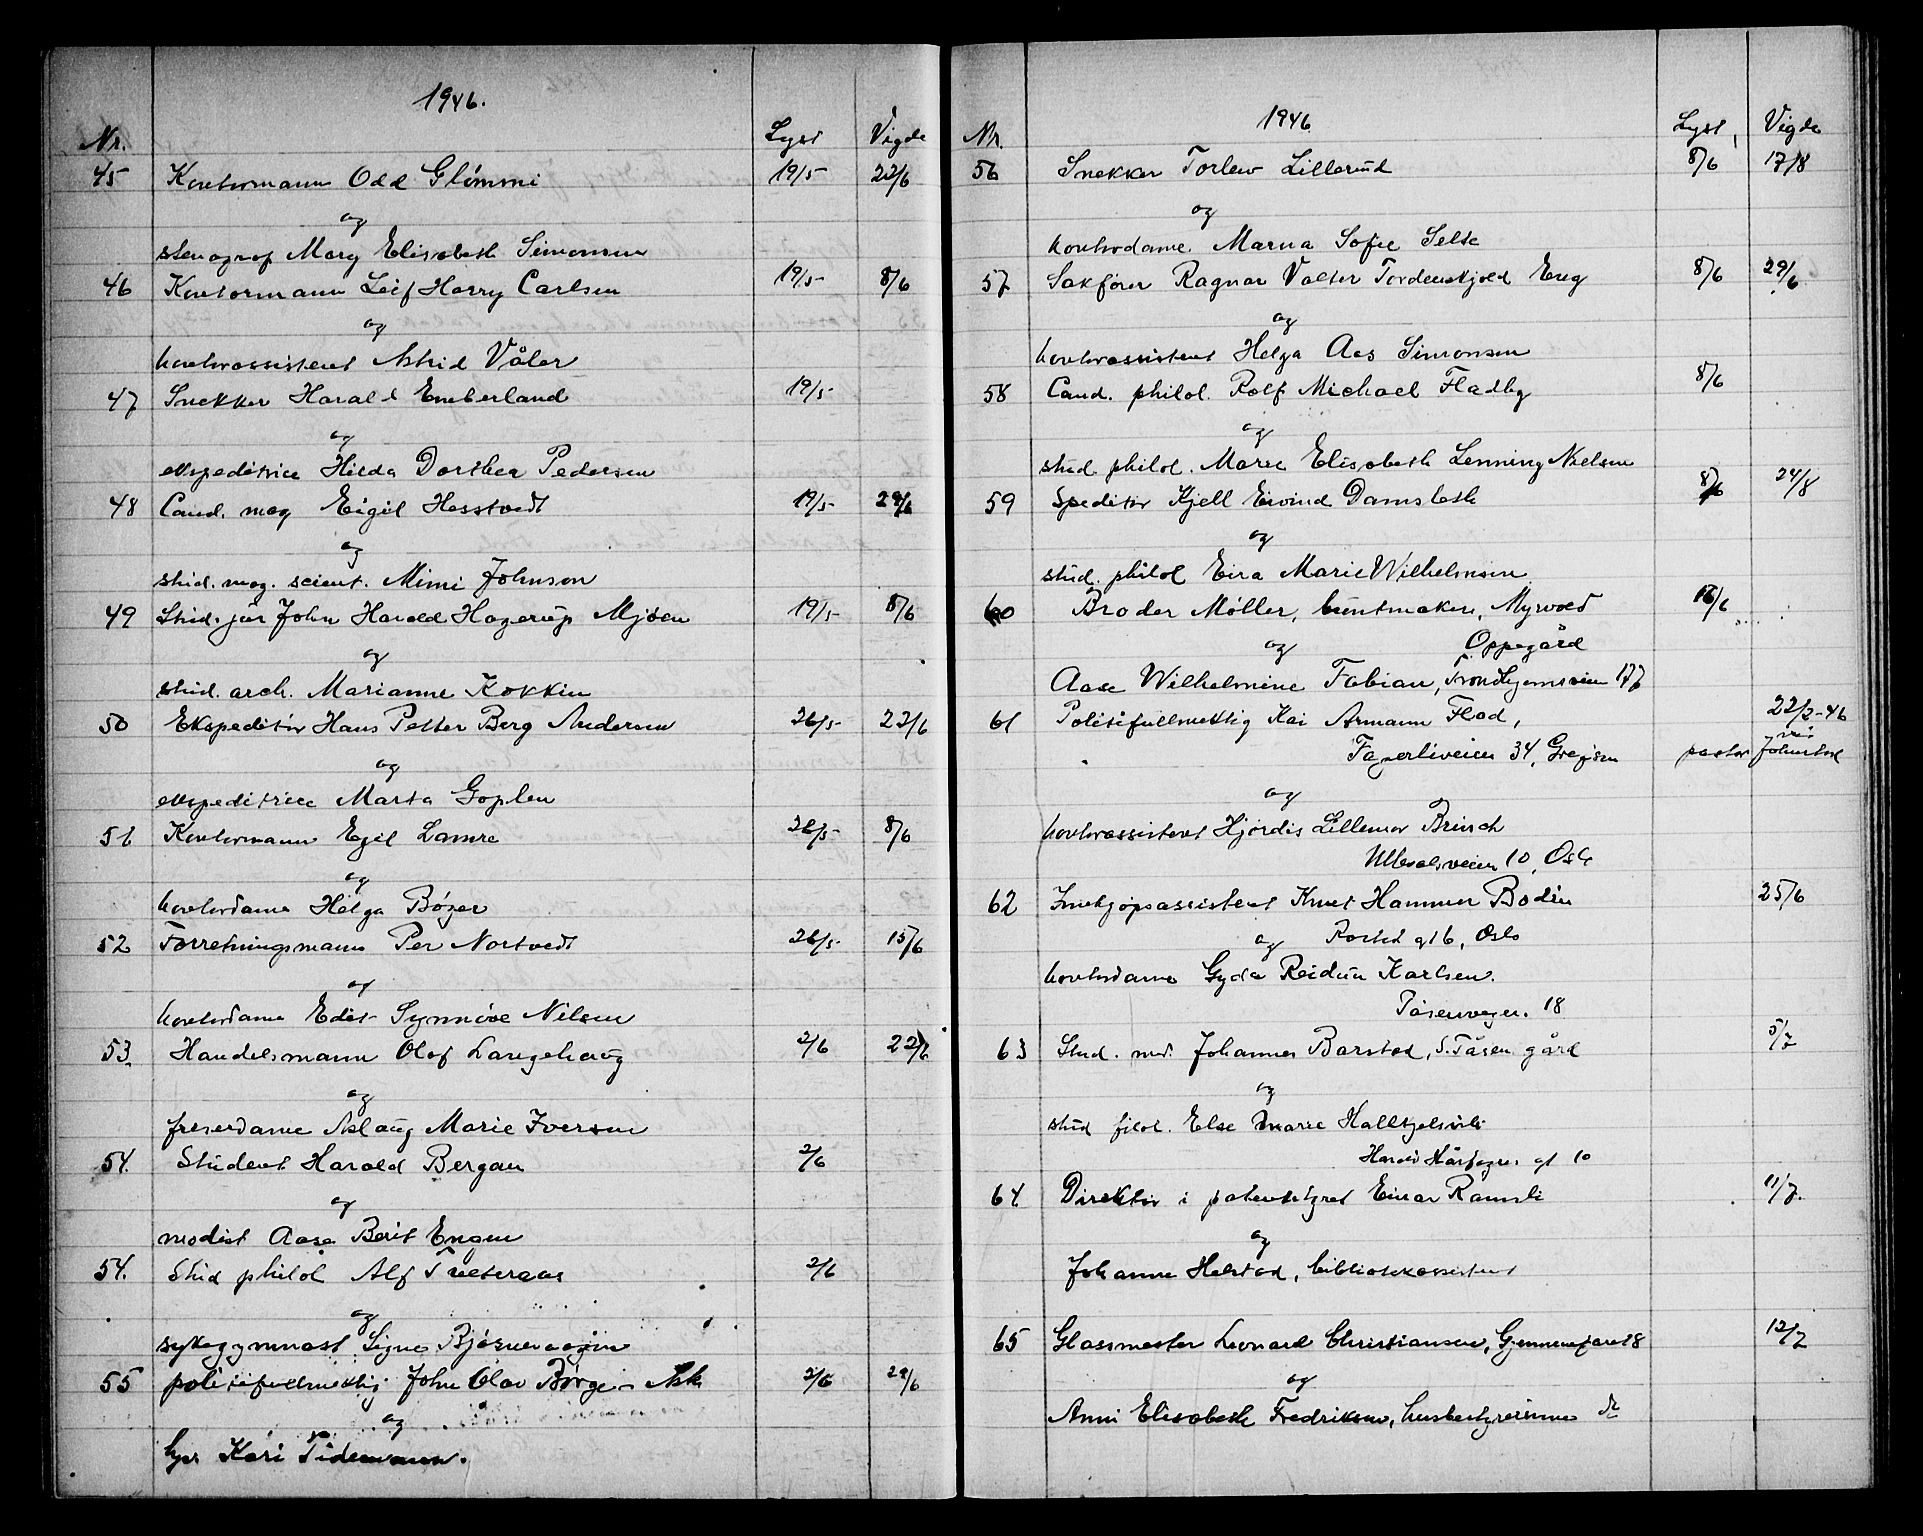 1946.
Nr. Lyst Vigde
45 Kontormann Odd Glømmi 19/5 22/6
og
stenograf Mary Elisabeth Simonsen
46 Kontormann Leif Harry Carlsen 19/5 8/6
og
kontorassistent Astrid Våler
47 Snekker Harald Emberland 19/5
og
ekspeditrice Hilda Dorthea Pedersen
48 Cand. mag Eigil Hesstvedt 19/5 29/6
og
stud. mag. scient. Mimi Johnson
49 Stud. jur John Harald Hagerup Mjøen 19/5 8/6
og
stud. arch. Marianne Kokkin
50 Ekspeditør Hans Petter Berg Andersen 26/5 22/6
og
ekspeditrice Marta Goplen
51 Kontormann Egil Lamre 26/5 8/6
og
kontordame Helga Bøger
52 Forretningsmann Per Nortvedt 26/5 15/6
og
kontordame Edit Synnöve Nilsen
53 Handelsmann Olaf Langehaug 2/6 22/6
og
freserdame Aslaug Marie Iversen
54. Student Harald Bergan 2/6
og
modist Aase Berit Engen
54. Stud philol Alf Treteraas 2/6
og
sykegymnast Signe
55 politifullmektig John Olav Börge- Ask 2/6 29/6
og
Kari Tidemann.
1946
Nr. Lyst, Vigde
56 Snekker Torlew Lillerud 8/6 17/8
og
kontordame Marna Sofie Selte
57 Sakfører Ragnar Valter Tordenskjold Eng 8/6 29/6
og
kontorassistent Helga Aas Simonsen
58 Cand. philol. Rolf Michael Fladby 8/6
og
stud. philol. Marie Elisabeth Lenning Nielsen
59 Speditör Kjell Eivind Damsleth 8/6 24/8
og
stud. philol Eira Marie Wilhelmsen
60 Broder Møller, buntmaker, Myrvold 16/6
og Oppegård
Aase Wilhelmine Fabian, Trondhjemsveien 177
61 Politifullmektig Kai Armann Flod, 22/2-46
Fagerliveien 34, Grefsen pastor Johnstad
og
kontorassistent Hjørdis Lillemor Brinch
Ullevalsveien 10, Oslo
62 Innkjøpsassistent Knut Hammer Bodin 25/6
og Rosted gt 6, Oslo
kontordame Gyda Reidun Karlsen.
Tåsenvegen. 18
63 Stud. med. Johannes Barstad, S. Tåsen gård 5/7
og
stud filol. Else Marie Hallkjelsvik
Harald Hårfagres gt 10
64. Direktør i patentstyret Einar Ramsli 11/7.
og
Johanne Helstad, bibliotekassistent
65 Glassmester Leonard Christiansen, Gjennemfaret 8 12/7
og
Anni Elisabeth Fredriksen, husbestyrerinne